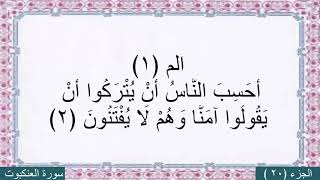 الم (١)
أَحَسِبَ النَّاسُ أَنْ يُتْرَكُوا أَنْ
يَقُولُوا آمَنَّا وَهُمْ لَا يُفْتَنُونَ (٢)
سورة العنكبوت
الجزء (٢٠)